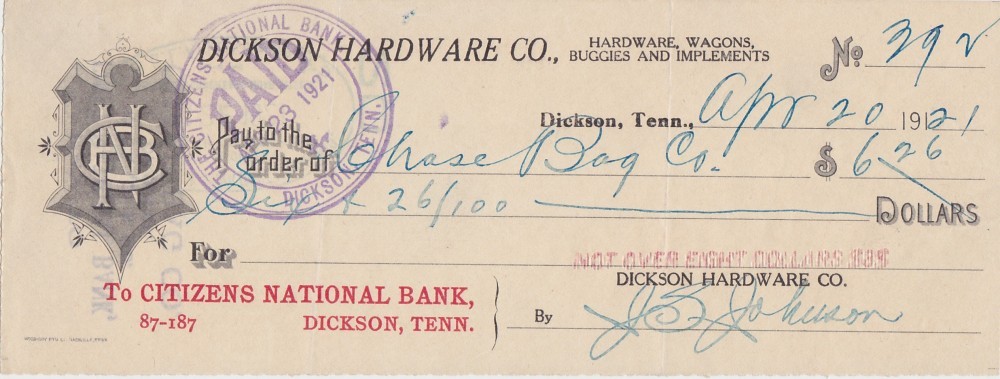 DICKSON HARDWARE CO., HARDWARE, WAGONS, BUGGIES AND IMPLEMENTS No 392
Dickson, Tenn., Apr 20 1921
Pay to the order of Chase Bag Co. $ 6 26
26/100 DOLLARS
For
NOT OVER EIGHT DOLLARS $8$
To CITIZENS NATIONAL BANK,
87-187 DICKSON, TENN.
DICKSON HARDWARE CO.
By J. S. Johnson
THE CITIZENS NATIONAL BANK
PAID
23 1921
DICKSON, TENN.
CNB
BANK,